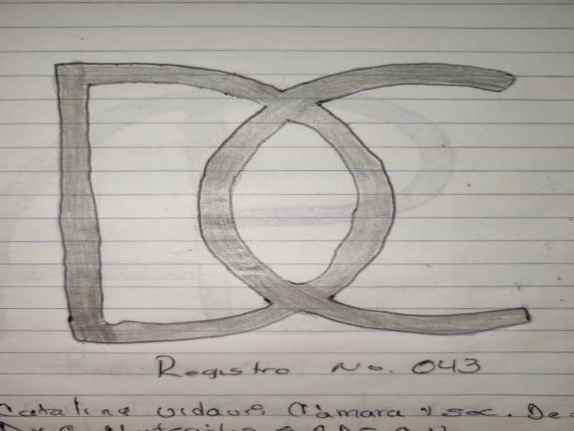 DC
Registro No. 043
Catalina vidaure Cámara y soc. De